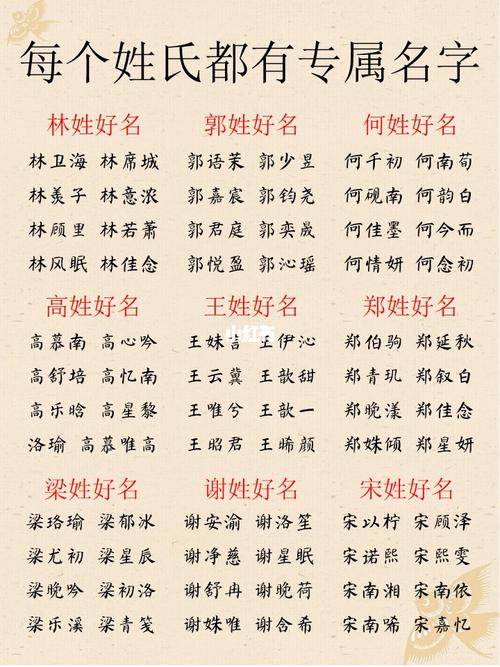 每个姓氏都有专属名字
林姓好名
林卫海 林席城
林羡子 林意浓
林顾里 林若萧
林风眠 林佳念
郭姓好名
郭语茉 郭少昱
郭嘉宸 郭钧尧
郭君庭 郭奕晟
郭悦盈 郭沁瑶
何姓好名
何千初 何南荀
何砚南 何韵白
何佳墨 何今而
何情妍 何念初
高姓好名
高慕南 高心吟
高舒培 高忆南
高乐晗 高星黎
洛瑜 高慕唯高
王姓好名
小红书
王姝言 王伊沁
王云冀 王歆甜
王唯兮 王歆一
王昭君 王晞颜
郑姓好名
郑伯驹 郑延秋
郑青玑 郑叙白
郑晚漾 郑佳念
郑姝倾 郑星妍
梁姓好名
梁珞瑜 梁郁冰
梁尤初 梁星辰
梁晚吟 梁初洛
梁乐溪 梁青笺
谢姓好名
谢安渝 谢洛笙
谢净慈 谢星眠
谢舒冉 谢晚荷
谢姝唯 谢含希
宋姓好名
宋以柠 宋顾泽
宋诺熙 宋熙雯
宋南湘 宋南依
宋南唏 宋嘉忆